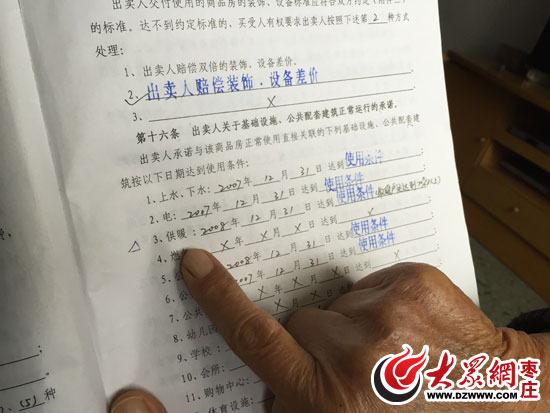 出卖人交付使用的商品房的装饰、设备标准应符合双方约定
的标准。达不到约定标准的，买受人有权要求出卖人按照下述第 2 种方式
处理：
1、出卖人赔偿双倍的装饰、设备差价。
2、出卖人赔偿装饰．设备差价
3、 ×
第十六条 出卖人关于基础设施、公共配套建筑正常运行的承诺。
出卖人承诺与该商品房正常使用直接关联的下列基础设施、公共配套建
筑按以下日期达到使用条件：
1、上水、下水：2007年 12 月 31 日 达到 使用条件
2、电：2007年 12 月 31 日 达到 使用条件
△ 3、供暖：2008年 12 月 31 日 达到 使用条件
4、 × 年 × 月 × 日 达到 ×
5、 2008年 12 月 31 日 达到 使用条件
6、公 2007年 12 月 31 日 达到 使用条件
7、公共 × 年 × 月 × 日
8、幼儿园
9、学校：
10、会所：
11、购物中心：
体育设施：
(5) 种
大眾網 枣庄
WWW.DZWWW.COM